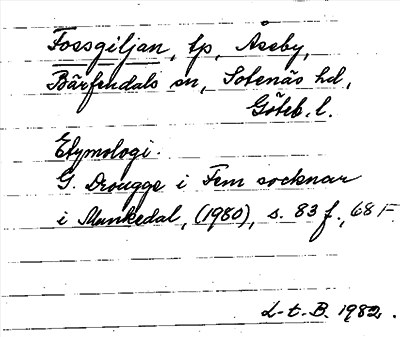 Fossgiljan, tp, Åseby,
Bärfendals sn, Sotenäs hd,
Göteb. l.
Etymologi.
G. Drougge i Fem socknar
i Munkedal, (1980), s. 83 f., 68 F.
L-t. B. 1982.